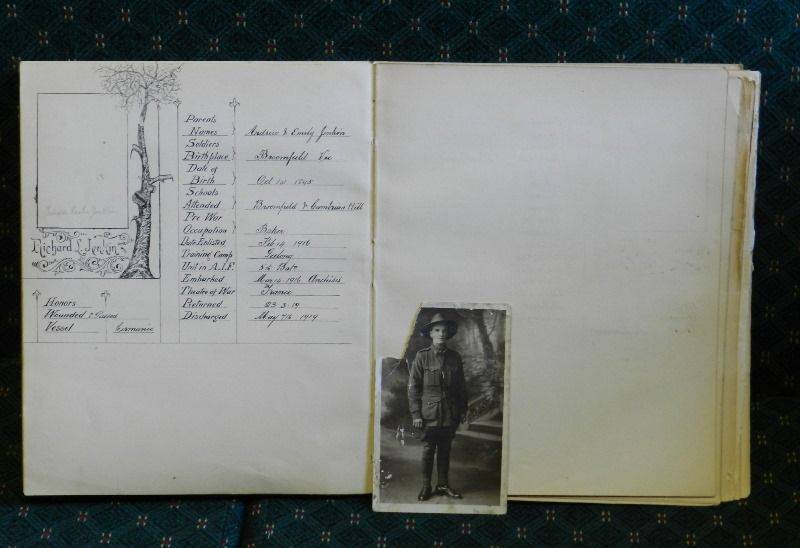 Richard L. Jenkin
Parents
Names Andrew & Emily Jenkin
Soldiers
Birthplace Broomfield Vic
Date of
Birth Oct 1st 1895
Schools
Attended Broomfield & Cumbrian Hill
Pre War
Occupation Baker
Date Enlisted Feb 14 1916
Training Camp Geelong
Unit in A.I.F. 8th Batt
Embarked May 16 1916
Theatre of War France
Returned 23-3-19
Discharged May 7th 1919
Honors
Wounded & Gassed
Vessel